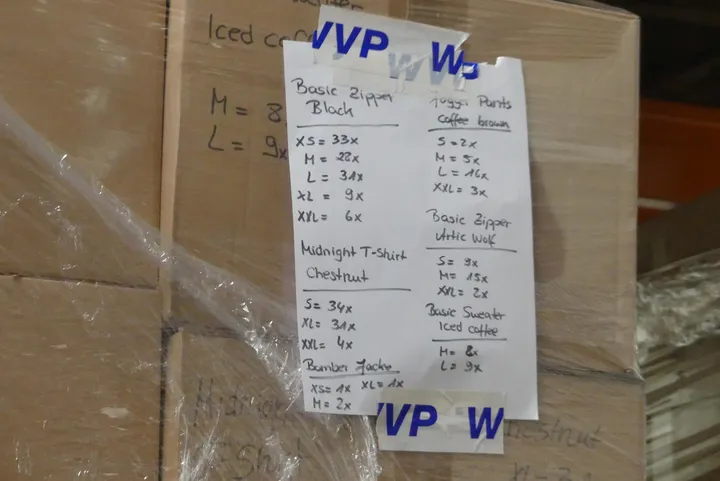 Iced
M = 8
L = 9x
VVP W
Basic Zipper
Black
XS = 33x
M = 22x
L = 31x
XL = 9x
XXL = 6x
Midnight T-Shirt
Chestnut
S = 34x
XL = 31x
XXL = 4x
Bomber Jacke
XS = 1x XL = 1x
M = 2x
Pants
coffee brown
S = 2x
M = 5x
L = 16x
XXL = 3x
Basic Zipper
Artic Wolf
S = 9x
M = 15x
XXL = 2x
Basic Sweater
Iced coffee
M = 8x
L = 9x
VVP W